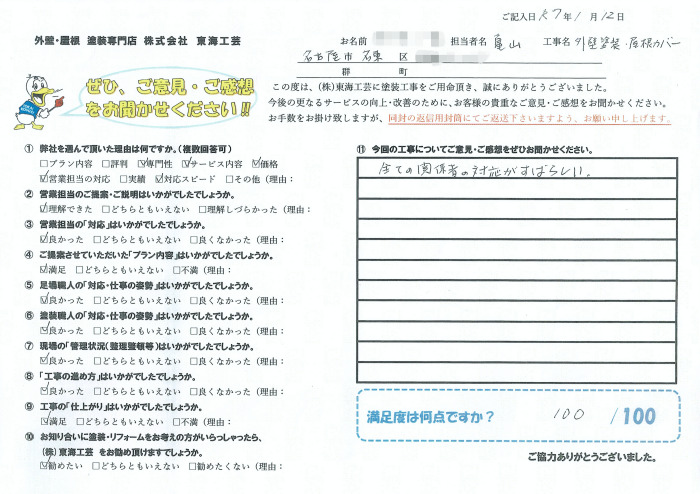 ご記入日 R7年 1月12日
外壁・屋根 塗装専門店 株式会社 東海工芸
お名前 担当者名 亀山 工事名 外壁塗装・屋根カバー
名古屋市 名東 区
郡 町
ぜひ、ご意見・ご感想
をお聞かせください!!
この度は、(株)東海工芸に塗装工事をご用命頂き、誠にありがとうございました。
今後の更なるサービスの向上・改善のために、お客様の貴重なご意見・ご感想をお聞かせください。
お手数をお掛け致しますが、同封の返信用封筒にてご返送下さいますよう、お願い申し上げます。
① 弊社を選んで頂いた理由は何ですか。(複数回答可)
□プラン内容 □評判 ☑専門性 ☑サービス内容 ☑価格
☑営業担当の対応 □実績 ☑対応スピード □その他(理由：
② 営業担当のご提案・ご説明はいかがでしたでしょうか。
☑理解できた □どちらともいえない □理解しづらかった(理由：
③ 営業担当の「対応」はいかがでしたでしょうか。
☑良かった □どちらともいえない □良くなかった(理由：
④ ご提案させていただいた「プラン内容」はいかがでしたでしょうか。
☑満足 □どちらともいえない □不満(理由：
⑤ 足場職人の「対応・仕事の姿勢」はいかがでしたでしょうか。
☑良かった □どちらともいえない □良くなかった(理由：
⑥ 塗装職人の「対応・仕事の姿勢」はいかがでしたでしょうか。
☑良かった □どちらともいえない □良くなかった(理由：
⑦ 現場の「管理状況(整理整頓等)はいかがでしたでしょうか。
☑良かった □どちらともいえない □良くなかった(理由：
⑧ 「工事の進め方」はいかがでしたでしょうか。
☑良かった □どちらともいえない □良くなかった(理由：
⑨ 工事の「仕上がり」はいかがでしたでしょうか。
☑満足 □どちらともいえない □不満(理由：
⑩ お知り合いに塗装・リフォームをお考えの方がいらっしゃったら、
(株)東海工芸 をお勧め頂けますでしょうか。
☑勧めたい □どちらともいえない □勧めたくない(理由：
⑪ 今回の工事についてご意見・ご感想をぜひお聞かせください。
全ての関係者の対応がすばらしい。
満足度は何点ですか？ 100 /100
ご協力ありがとうございました。